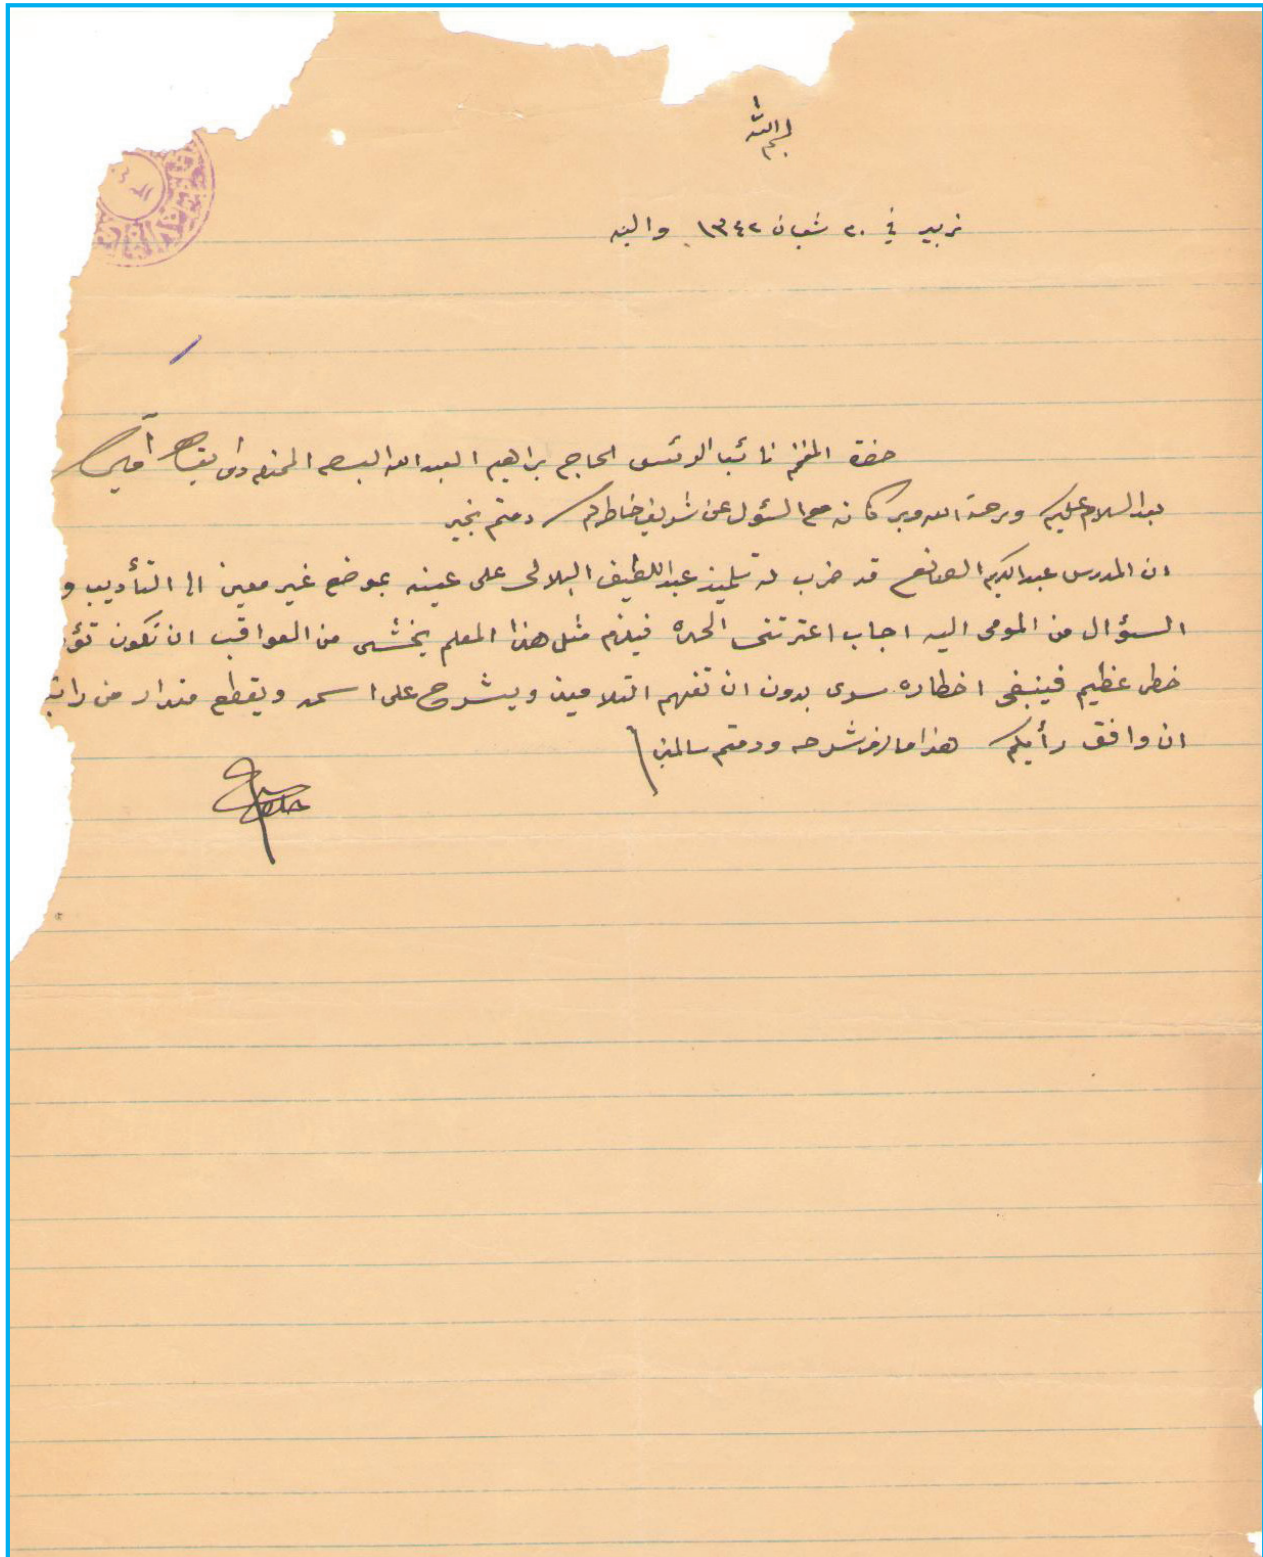 بسم الله
زبير في ٢٠ شعبان ١٣٤٢ والينه
حضرة المفخم نائب الرئيس الحاج براهيم العبد الله البسام المحترم دام بقاه آمين
بعد السلام عليكم ورحمة الله وبركاته مع السئول عن شريف خاطركم دمتم بخير
ان المدرس عبد الكريم الصانع قد ضرب له تلميذ عبد اللطيف البلالى على عينه بموضع غير معين الى التأديب و
السؤال من المومى اليه اجاب اعترتنى الحده فيلزم مثل هذا المعلم يخشى من العواقب ان تكون تؤ
خطر عظيم فينبغى اخطاره سرى بدون ان تفهم التلاميذ ويشرح على اسمه ويقطع مقدار من راتبه
ان وافق رأيكم هذا ما لزم شرحه ودمتم سالمين